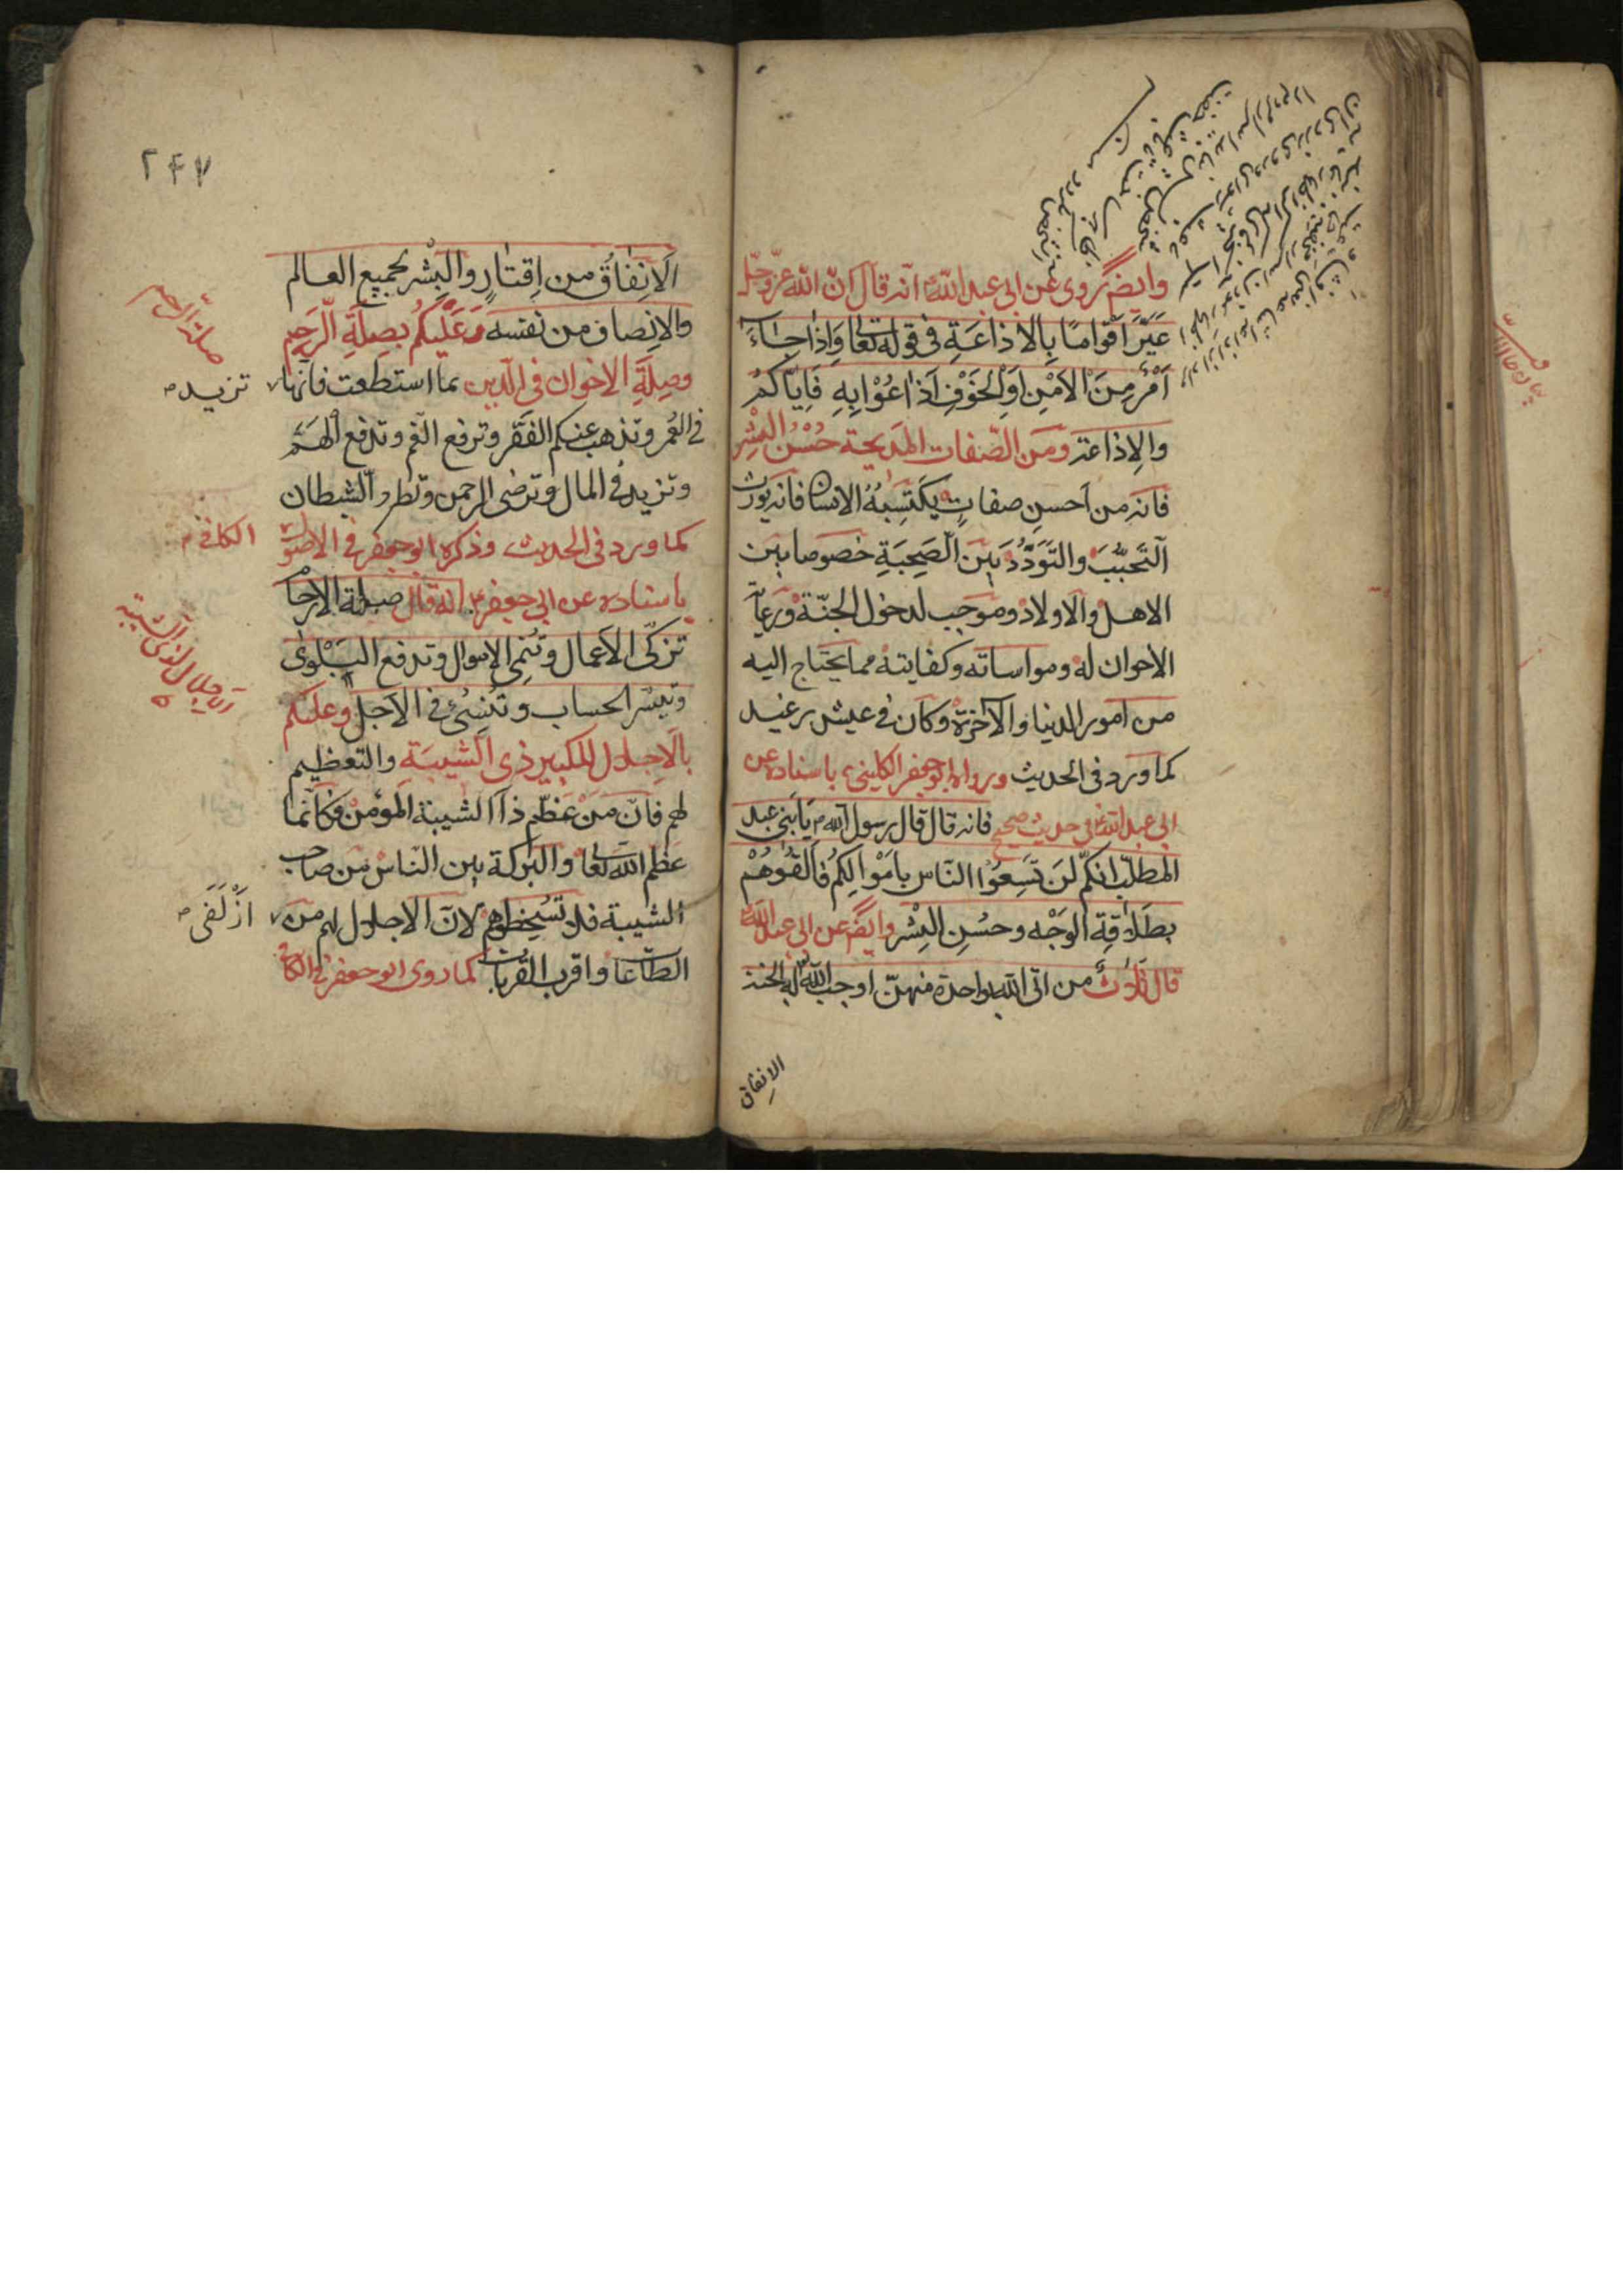 وايضً روى عن ابى عبد الله ع انه قال انّ الله عزّ وجلّ
عَيَّرَ اَقْوامًا بِالاذاعَةِ فى قوله تعالى وَاِذا جاءَ
اَمْرٌ مِنَ الاَمْنِ اَوِ الخَوْفِ اَذاعُوْا بِهِ فَاِيّاكُمْ
والاِذاعة ومَن الصّفات المَديحة حُسْنُ البِشْرِ
فانه من اَحسنِ صفاتٍ يَكْتَسِبُهُ الانسان فانه يورث
اَلتَّحَبُّبَ والتَّوَدُّدَ بَيْنَ الصَحِبَةِ خصوصا بين
الاهل والاولاد وموجب لدخول الجنّة ورعاية
الاخوان له ومواساته وكفايته مما يحتاج اليه
من امور الدنيا والآخرة وكان فى عيش رغيد
كما ورد فى الحديث ورواه ابو جعفر الكلينى باسناده عن
ابى عبد الله ع فى حديث صحيح فانه قال قال رسول الله ص يَا بَنى عبد
المطلّب انكمْ لَن تَسِعُوْا النّاس بِاَمْوالِكُمْ فَالْقُوْهُمْ
بطَلاقِةِ الوَجْه وحُسْنِ البِشْر وايضً عن ابى عبد الله ع
قال ثَلاثٌ من اتى الله بواحدة منهنّ اوجب الله له الجنة
الاِنفاق
٢٤٧
اَلاِنْفاقُ من اِقتارٍ والبِشْر بجميع العالم
والاِنصاف من نفسه وَعَلَيْكُمْ بِصِلَةِ الرَّحِمِ
صلة الرحم
وصِلَةِ الاخوان فى الدّين بما استطعت فانها
تزيد
فى العُمر وتذهب عنكم الفَقر وترفع الغم وتدفع الهَمَّ
وتزيد فى المال وترضى الرحمن وتطرد الشيطان
كما ورد فى الحديث وذكره ابو جعفر فى الاصول
الكافى
باسناده عن ابى جعفر ع انه قال صلة الارحام
تزكّى الاَعمال وتُنمِى الاموال وتدفع البَلْوى
وتيسّر الحساب وتُنْسِئُ فى الاَجل وعليكم
بالاَجلال للكبير ذى الشيبَة والتعظيم
لهم فانّ مَنْ عَظّم ذا الشيبة المؤمن فكانّما
عظم الله تعالى والبركة بين الناس من صاحب
الشيبة فلا تُسْخِطوهم لانّ الاجلال لهم من
اَزْلَفى
الطاعات واقرب القربات كما روى ابو جعفر فى الكافى